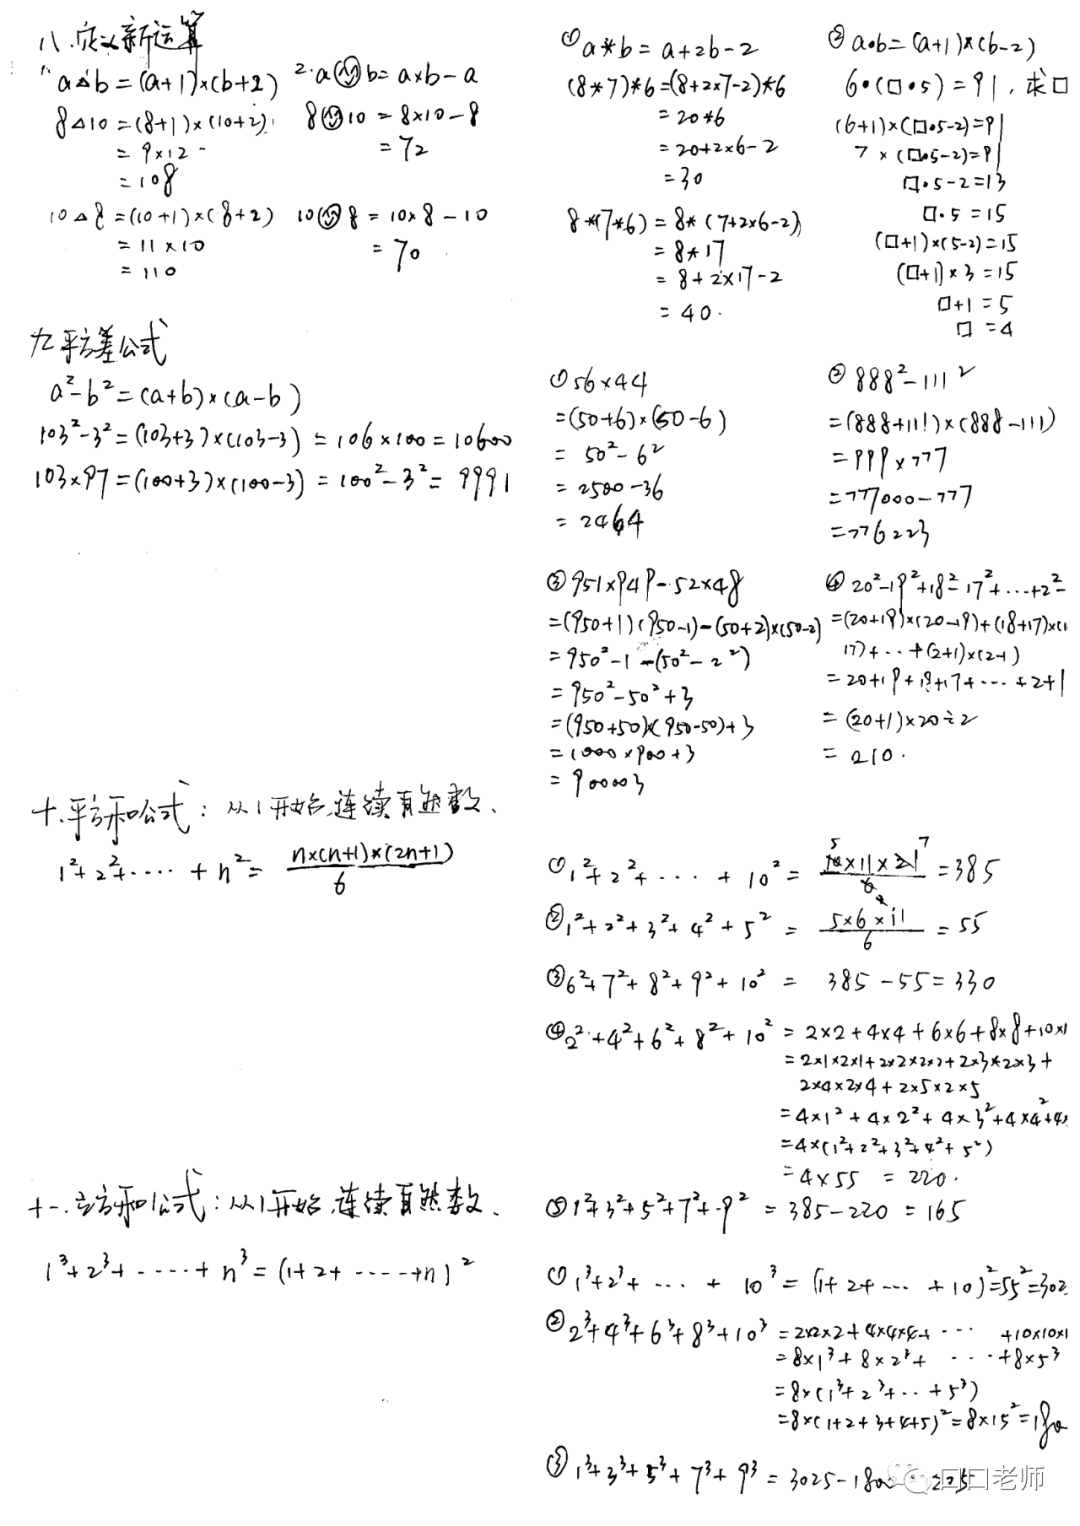 八.定义新运算
1. a△b=(a+1)×(b+2)
8△10=(8+1)×(10+2)
=9×12
=108
10△8=(10+1)×(8+2)
=11×10
=110
2.a b=a×b-a
8 10=8×10-8
=72
10 8=10×8-10
=70
①a*b=a+2b-2
(8*7)*6=(8+2×7-2)*6
=20*6
=20+2×6-2
=30
8*(7*6)=8*(7+2×6-2)
=8*17
=8+2×17-2
=40.
②a•b=(a+1)×(b-2)
6•(□•5)=91,求□
(6+1)×(□•5-2)=91
7×(□•5-2)=91
□•5-2=13
□•5=15
(□+1)×(5-2)=15
(□+1)×3=15
□+1=5
□=4
九.平方差公式
a²-b²=(a+b)×(a-b)
103²-3²=(103+3)×(103-3)=106×100=10600
103×97=(100+3)×(100-3)=100²-3²=9991
①56×44
=(50+6)×(50-6)
=50²-6²
=2500-36
=2464
②888²-111²
=(888+111)×(888-111)
=999×777
=777000-777
=776223
③951×949-52×48
=(950+1)(950-1)-(50+2)×(50-2)
=950²-1-(50²-2²)
=950²-50²+3
=(950+50)×(950-50)+3
=1000×900+3
=900003
④20²-19²+18²-17²+…+2²-
=(20+19)×(20-19)+(18+17)×(1
17)+…+(2+1)×(2-1)
=20+19+18+17+…+2+1
=(20+1)×20÷2
=210.
十.平方和公式:从1开始,连续自然数.
1²+2²+……+n²=n×(n+1)×(2n+1)/6
①1²+2²+…+10²=10×11×21/6=385
②1²+2²+3²+4²+5²=5×6×11/6=55
③6²+7²+8²+9²+10²=385-55=330
④2²+4²+6²+8²+10²=2×2+4×4+6×6+8×8+10×1
=2×1×2×1+2×2×2×2+2×3×2×3+
2×4×2×4+2×5×2×5
=4×1²+4×2²+4×3²+4×4²+4×
=4×(1²+2²+3²+4²+5²)
=4×55=220.
⑤1²+3²+5²+7²+9²=385-220=165
十一.立方和公式:从1开始,连续自然数.
1³+2³+……+n³=(1+2+……+n)²
①1³+2³+…+10³=(1+2+…+10)²=55²=302
②2³+4³+6³+8³+10³=2×2×2+4×4×4+…+10×10×1
=8×1³+8×2³+…+8×5³
=8×(1³+2³+…+5³)
=8×(1+2+3+4+5)²=8×15²=180
③1³+3³+5³+7³+9³=3025-1800=1225
口口老师